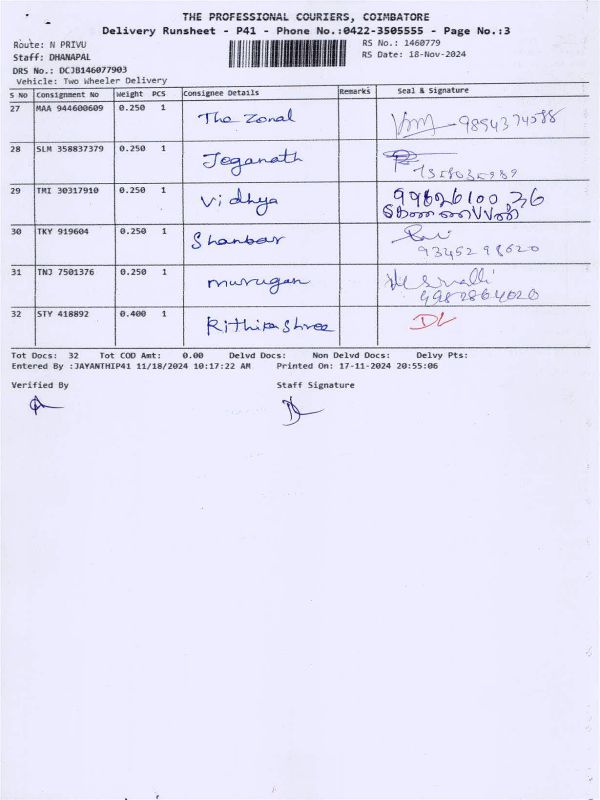 THE PROFESSIONAL COURIERS, COIMBATORE
Delivery Runsheet - P41 - Phone No.:0422-3505555 - Page No.:3
Route: N PRIVU RS No.: 1460779
Staff: DHANAPAL RS Date: 18-Nov-2024
DRS No.: DCJB146077903
Vehicle: Two Wheeler Delivery
S No Consignment No Weight PCS Consignee Details Remarks Seal & Signature
27 MAA 944600609 0.250 1 The Zonal
28 SLM 358837379 0.250 1 Jeganath
29 TMI 30317910 0.250 1 Vidhya
30 TKY 919604 0.250 1 Shankar
9345298620
31 TNJ 7501376 0.250 1 murugan
32 STY 418892 0.400 1 Rithika Shree DL
Tot Docs: 32 Tot COD Amt: 0.00 Delvd Docs: Non Delvd Docs: Delvy Pts:
Entered By :JAYANTHIP41 11/18/2024 10:17:22 AM Printed On: 17-11-2024 20:55:06
Verified By Staff Signature